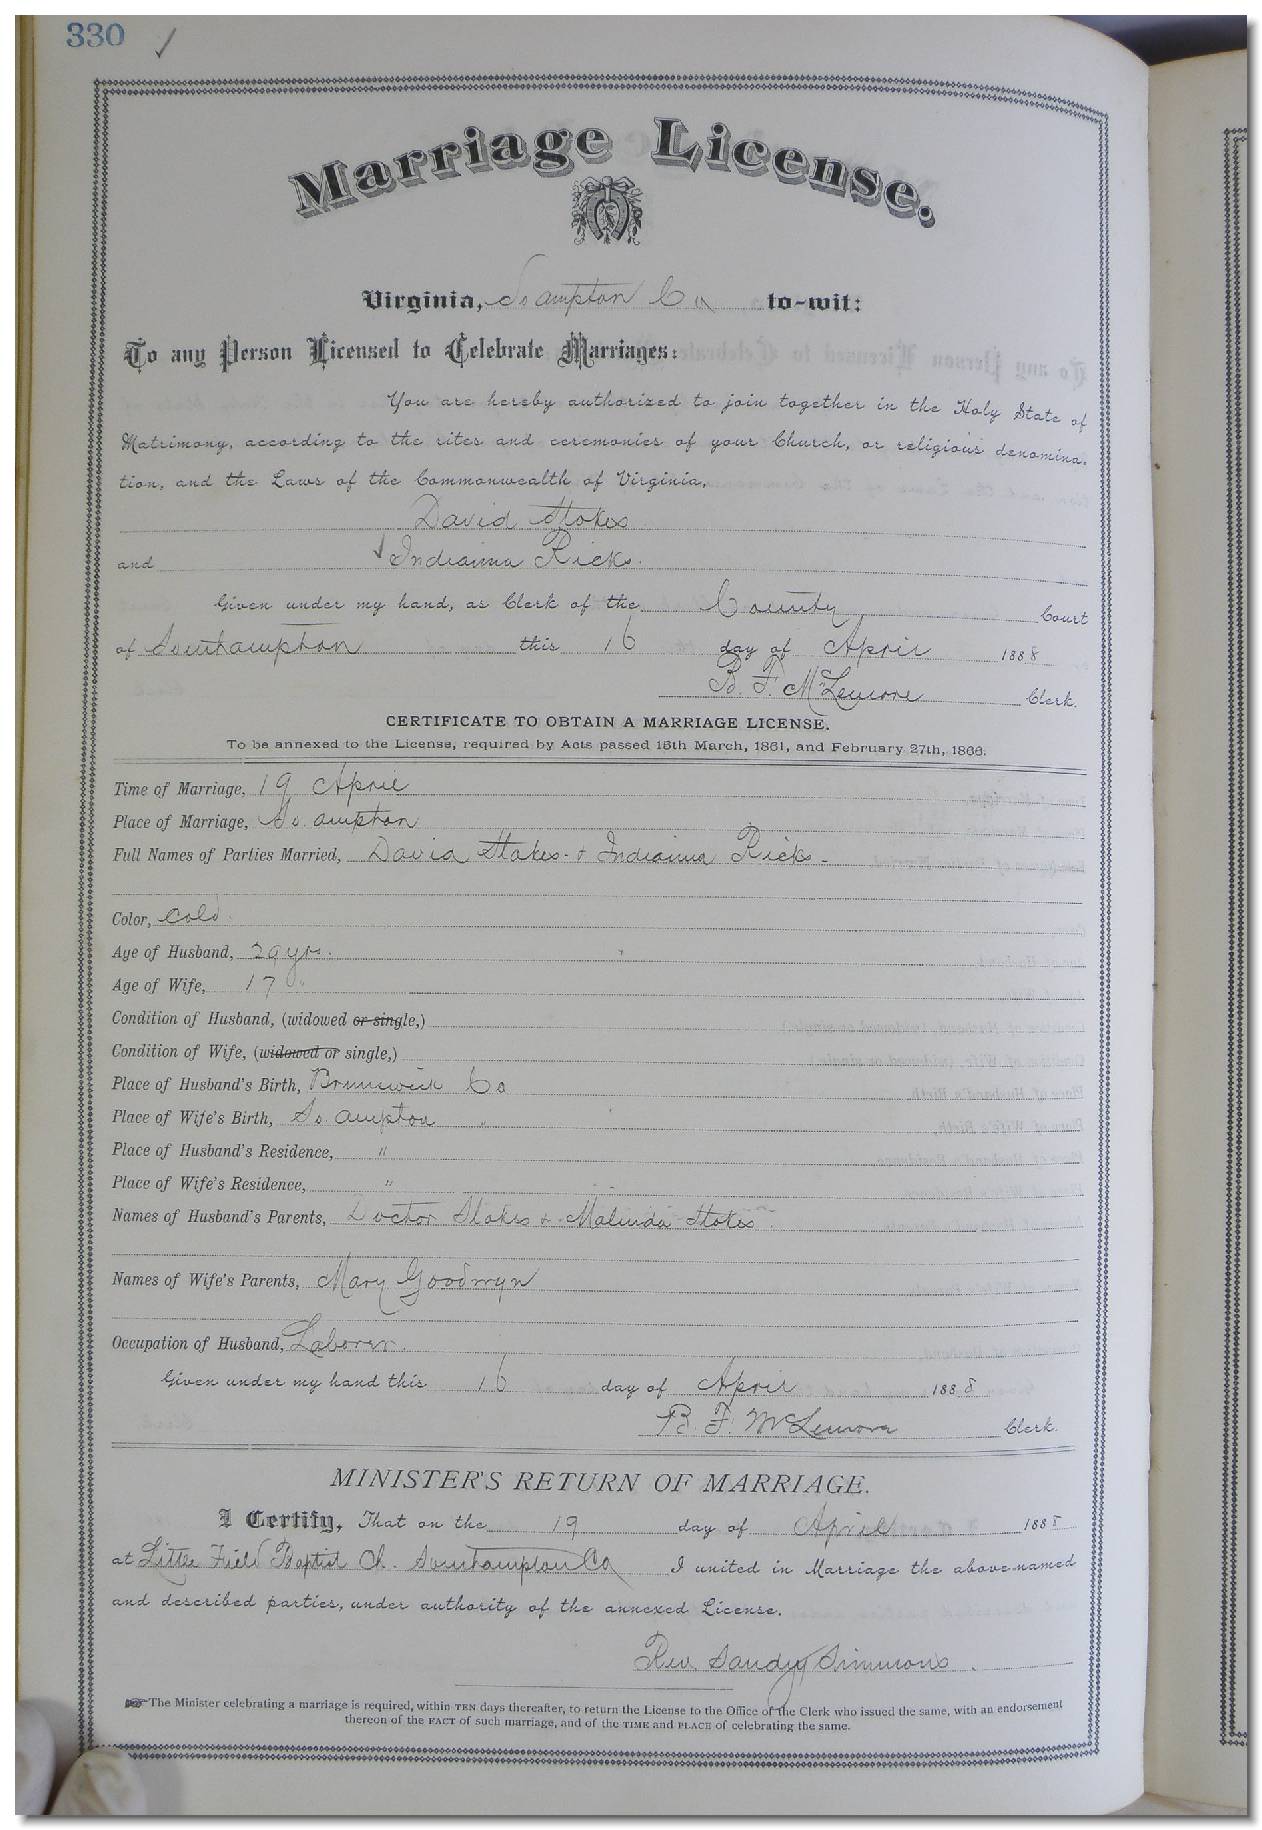 330 ✓
Marriage License.
Virginia, So ampton Co to-wit:
To any Person Licensed to Celebrate Marriages:
You are hereby authorized to join together in the Holy State of
Matrimony, according to the rites and ceremonies of your Church, or religious denomina-
tion, and the Laws of the Commonwealth of Virginia,
David Stokes
and Indianna Ricks.
Given under my hand, as Clerk of the County Court
of Southampton this 16 day of April 1888
B. F. McLemore Clerk.
CERTIFICATE TO OBTAIN A MARRIAGE LICENSE.
To be annexed to the License, required by Acts passed 15th March, 1861, and February 27th, 1866.
Time of Marriage, 19 April
Place of Marriage, So. ampton
Full Names of Parties Married, David Stokes & Indianna Ricks
Color, Cold
Age of Husband, 29 yrs.
Age of Wife, 17 "
Condition of Husband, (widowed or single,)
Condition of Wife, (widowed or single,)
Place of Husband's Birth, Brunswick Co
Place of Wife's Birth, So. ampton "
Place of Husband's Residence, "
Place of Wife's Residence, "
Names of Husband's Parents, Doctor Stokes & Malinda Stokes
Names of Wife's Parents, Mary Goodwyn
Occupation of Husband, Laborer.
Given under my hand this 16 day of April 1888
B. F. McLemore Clerk.
MINISTER'S RETURN OF MARRIAGE.
I Certify, That on the 19 day of April 1888
at Little Field Baptist Ch. Southampton Co I united in Marriage the above-named
and described parties, under authority of the annexed License.
Rev. Sandy Simmons.
☞ The Minister celebrating a marriage is required, within TEN days thereafter, to return the License to the Office of the Clerk who issued the same, with an endorsement
thereon of the FACT of such marriage, and of the TIME and PLACE of celebrating the same.